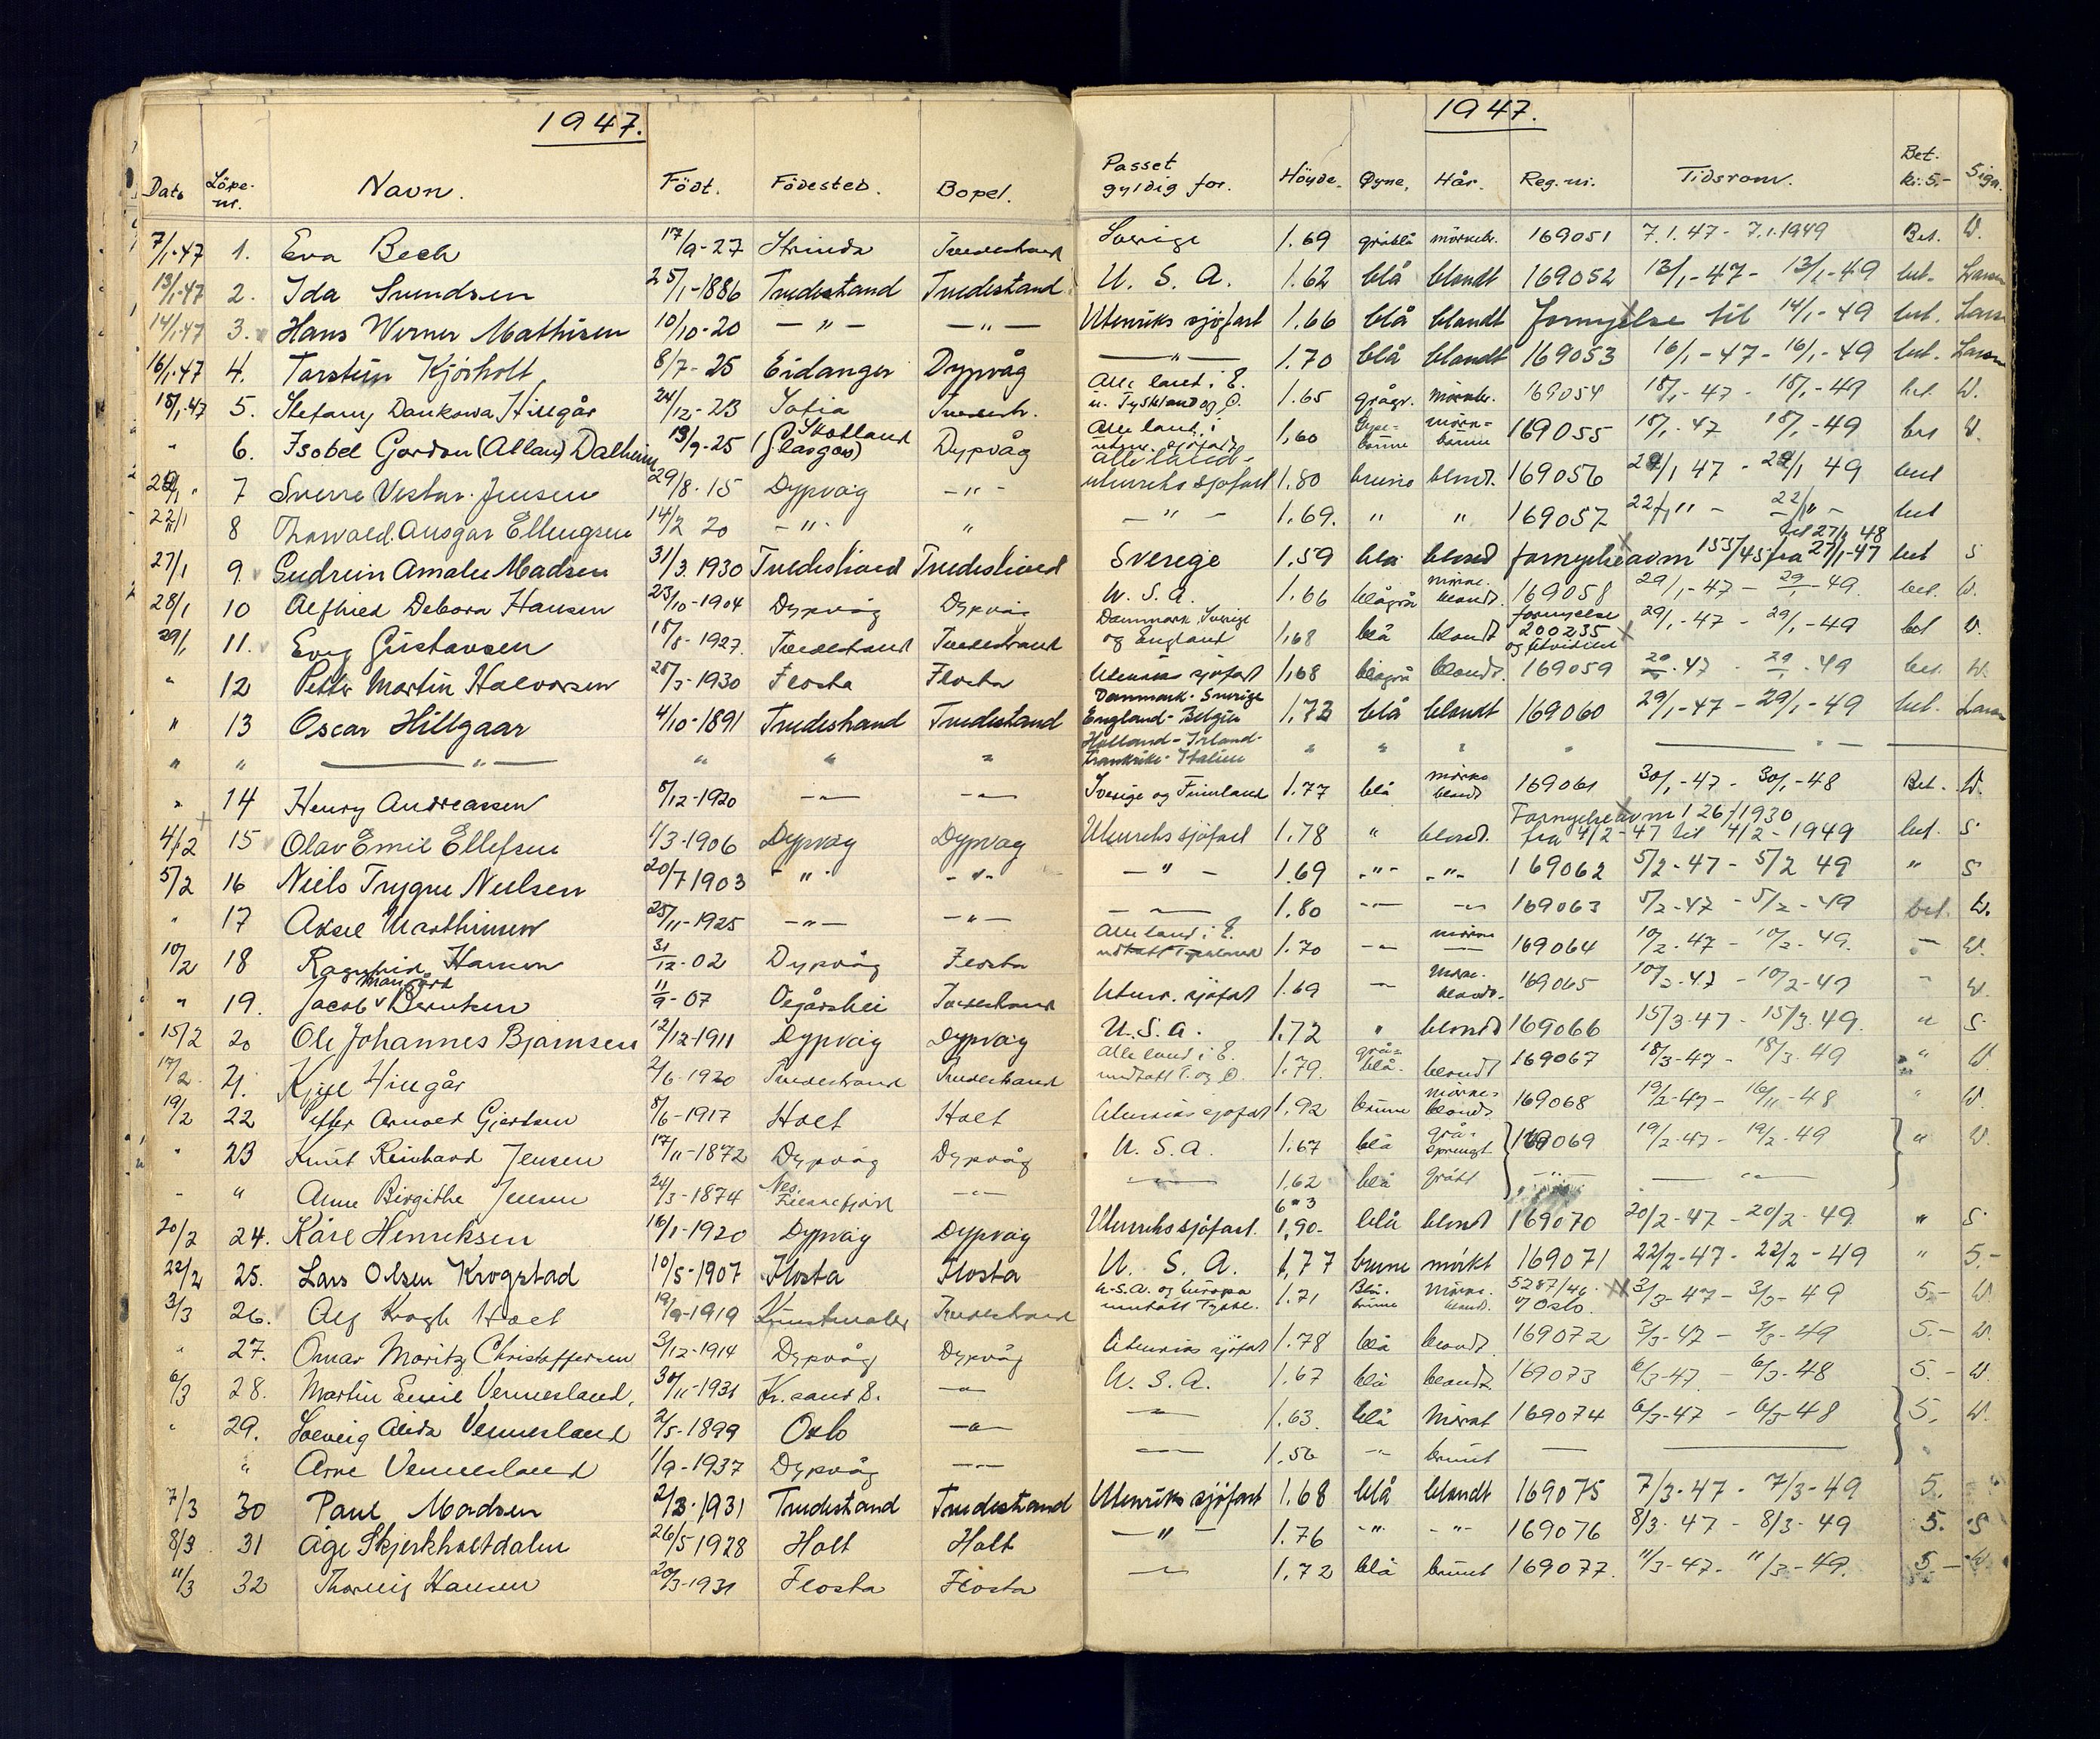 1947.
Dato Löpe-nr. Navn. Födt. Födested. Bopel.
7/1-47 1. Eva Bech 17/9-27 Strinda Tvedestrand
13/1-47 2. Ida Svendsen 25/1-1886 Tvedestrand Tvedestrand
14/1-47 3. Hans Werner Mathisen 10/10-20 — " — — " —
16/1-47 4. Torstein Kjörholt 8/7-25 Eidanger Dypvåg
18/1-47 5. Stefany Dankowa Hillgår 24/12-23 Sofia Tvedestr.
" 6. Isobel Gordon (Allan) Dalheim 13/9-25 Skotland (Glasgow) Dypvåg
7 Sverre Vestar Jensen 29/8-15 Dypvåg — " —
22/1 8 Thorvald Ansgar Ellingsen 14/2 20 — " — "
27/1 9. Gudrun Amalie Madsen 31/3 1930 Tvedestrand Tvedestrand
28/1 10 Alfhild Debora Hansen 23/10-1904 Dypvåg Dypvåg
29/1 11. Evy Gustavsen 18/8-1927. Tvedestrand Tvedestrand
" 12 Petter Martin Halvorsen 28/3-1930 Flosta Flosta
" 13 Oscar Hillgaar 4/10-1891 Tvedestrand Tvedestrand
" " — " — " " "
" 14 Henry Andreassen 8/12-1920 — " — — " —
4/2 15 Olav Emil Ellefsen 1/3-1906 Dypvåg Dypvåg
5/2 16 Niels Trygve Nielsen 20/7 1903 — " — — " —
" 17 Aksel Marthinsen 25/11-1925 — " — — " —
10/2 18 Ragnhild Hansen 31/12-02 Dypvåg Flosta
" 19. Jacob Berntsen 11/9-07 Vegårshei Tvedestrand
15/2 20 Ole Johannes Bjørnsen 12/12-1911 Dypvåg Dypvåg
17/2 21. Kjell Hillgår 2/6-1920 Tvedestrand Tvedestrand
19/2 22 Petter Arnold Gjertsen 8/6-1917 Holt Holt
" 23 Knut Reinhard Jensen 17/11-1872 Dypvåg Dypvåg
- " Anne Birgithe Jensen 24/3-1874 Nes — " —
20/2 24. Kåre Henriksen 16/1-1920 Dypvåg Dypvåg
22/2 25. Lars Olsen Krogstad 10/5-1907 Flosta Flosta
3/3 26. Alf Krogh Holt 19/9-1919 Tvedestrand
" 27. Omar Moritz Christoffersen 31/12-1914 Dypvåg Dypvåg
6/3 28. Martin Emil Vennesland. 30/11-1931 Kr.sand S. — " —
" 29. Solveig Alida Vennesland 2/5-1899 Oslo — " —
" Arne Vennesland 1/9-1937 Dypvåg — " —
7/3 30 Paul Madsen 2/3-1931 Tvedestrand Tvedestrand
8/3 31 Åge Skjerkholtdalen 26/5-1928 Holt Holt
11/3 32 Hansen 20/3-1931 Flosta Flosta
1947.
Passet gyldig for. Höyde. Öyne. Hår. Reg.nr. Tidsrom. Bet. kr. 5.- Sign.
Sverige 1.69 gråblå mörkebr. 169051 7.1.47 - 7.1.1949 Bet. W.
U. S. A. 1.62 blå blondt 169052 13/1-47 - 13/1-49 bet. Larsen
Utenriks sjöfart 1.66 blå blondt Fornyelse til 14/1-49 bet. Larsen
— " — 1.70 blå blondt 169053 16/1-47 - 16/1-49 bet. Larsen
Alle land i E. u. Tyskland og Ö. 1.65 grågr. mörkebr. 169054 18/1-47 - 18/1-49 bet. W.
Alle land i utenr. sjöfart 1,60 lyse-brune mörk-brune 169055 18/1-47 18/1-49 bet W.
Alle land - utenriks sjöfart 1.80 brune blond. 169056 47 - 49 bet
— " — 1.69. " " 169057 22/1 " - 22/1 " - bet
til 27/1 48
Sverige 1.59 blå blond fornyelse av nr 153/45 fra 27/1-47 bet S
U. S. A. 1.66 blågrå mörke. blondt. 169058 29/1-47 - 29/1-49. bet. W.
Danmark, Sverige og England 1,68 blå blondt fornyelse 200235 29/1-47 - 29/1-49 bet W.
Utenriks sjöfart 1,68 blågrå blondt. 169059 29/1-47 - 29/1-49 bet. W.
Danmark - Sverige
England - Belgia 1,73 blå blondt 169060 29/1-47 - 29/1-49 bet. Larsen
Holland - Irland -
Frankrike - Italien " " " " — " —
Sverige og Finnland 1.77 blå mörke blondt 169061 30/1-47 - 30/1-48 Bet. W.
Fornyelse av nr 126/1930
Utenriks sjöfart 1.78 " blond. fra 4/2-47 til 4/2-1949 bet. S
— " — 1.69 — " — — " — 169062 5/2-47 - 5/2 49 " S
— " — 1.80 — " — — " — 169063 5/2-47 - 5/2-49 bet. W.
Alle land i E. undtatt Tyskland 1.70 — " — mörke 169064 10/2-47 - 10/2-49. — " — W.
Utenr. sjöfart 1.69 — " — mörke-blondt. 169065 10/2-47 - 10/2-49 " W.
U.S.A. 1.72 " blond 169066 15/3-47 - 15/3-49. " S
Alle land i E. undtatt T. og Ö. 1.79. grå-blå. blondt 169067 18/3-47 - 18/3-49 " W
Utenriks sjöfart 1,92 brune mörke-blondt 169068 19/2-47 - 16/11-48 " W.
U. S. A. 1.67 blå grå-sprengt 169069 19/2-47 - 19/2-49 " W.
— " — 1,62 blå grått — " — — " —
Utenriks sjöfart. 1,90- blå blond 169070 20/2-47 - 20/2-49. " S
U. S. A. 1,77 brune mörkt 169071 22/2-47 - 22/2-49 " 5.-
U.S.A. og Europa unntatt Tyskl. 1.71 Blå-brune mörke-blondt. 5287/46. Oslo. 3/3-47 - 3/3-49 5.- W
Utenriks sjöfart 1.78 blå blondt. 169072 3/3-47 - 3/3-49 5.- W.
U. S. A. 1.67 blå blondt. 169073 6/3-47 - 6/3-48 5.- W
— " — 1.63. blå Mörkt 169074 6/3-47 - 6/3-48 5. W.
— " — 1.56 — " — brunt — —
Utenriks sjöfart 1.68 blå blondt 169075 7/3-47 - 7/3-49 5. "
— " — 1.76 — " — — " — 169076 8/3-47 - 8/3-49 5. S
— " — 1,72 blå brunt 169077. 11/3-47. - 11/3-49. 5.- W